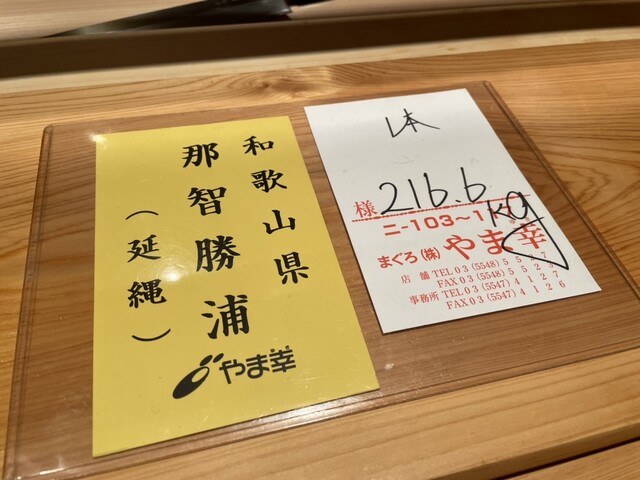 和歌山県
那智勝浦
（延縄）
やま幸
216.6
kg
様
ニ-103~1
まぐろ（株）やま幸
店舗 TEL 03 (5548) 5527
FAX 03 (5548) 5527
事務所 TEL 03 (5547) 4127
FAX 03 (5547) 4126